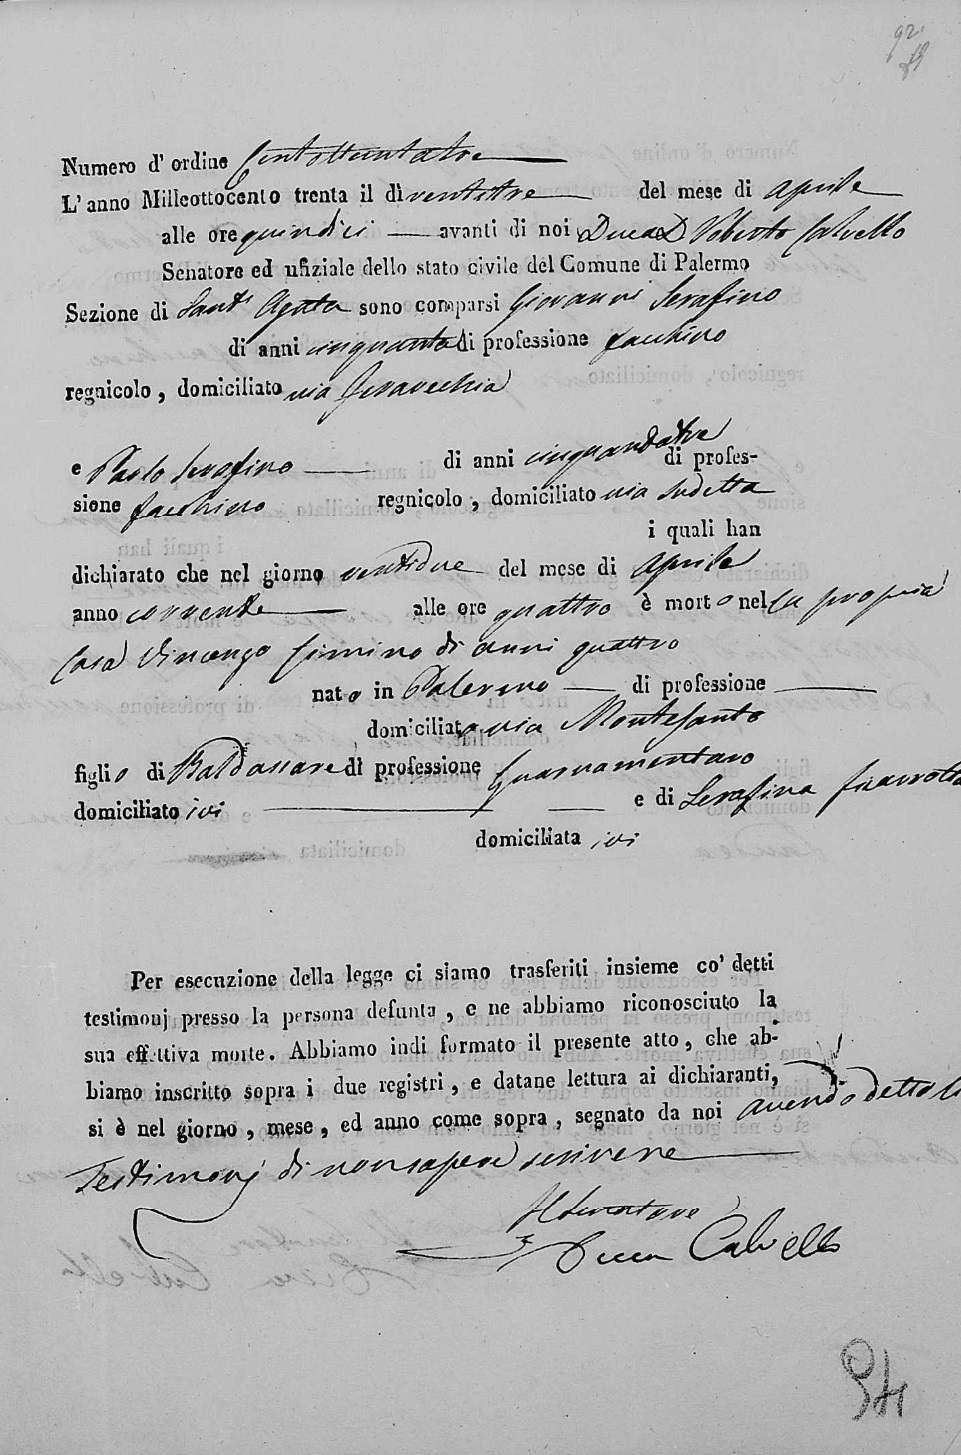 92
Numero d' ordine Centottantatre
L' anno Milleottocento trenta il dì ventitre del mese di Aprile
alle ore quindici avanti di noi Duca D. Roberto Calvello
Senatore ed ufiziale dello stato civile del Comune di Palermo
Sezione di Sant' Agata sono comparsi Giovanni Serafino
di anni cinquanta di professione facchino
regnicolo, domiciliato via
e Paolo Serafino di anni cinquandatre di profes-
sione facchino regnicolo, domiciliato via sudetta
i quali han
dichiarato che nel giorno ventidue del mese di Aprile
anno corrente alle ore quattro è morto nella propria
Casa Vincenzo Cimino di anni quattro
nato in Palermo di professione
domiciliato via Montesanto
figlio di Baldassare di professione Guarnamentaro
domiciliato ivi e di Serafina
domiciliata ivi
Per esecuzione della legge ci siamo trasferiti insieme co' detti
testimonj presso la persona defunta, e ne abbiamo riconosciuto la
sua effettiva morte. Abbiamo indi formato il presente atto, che ab-
biamo inscritto sopra i due registri, e datane lettura ai dichiaranti,
si è nel giorno, mese, ed anno come sopra, segnato da noi avendo detto li
Testimonj di non sapere scrivere
Il Senatore
Duca Calvello